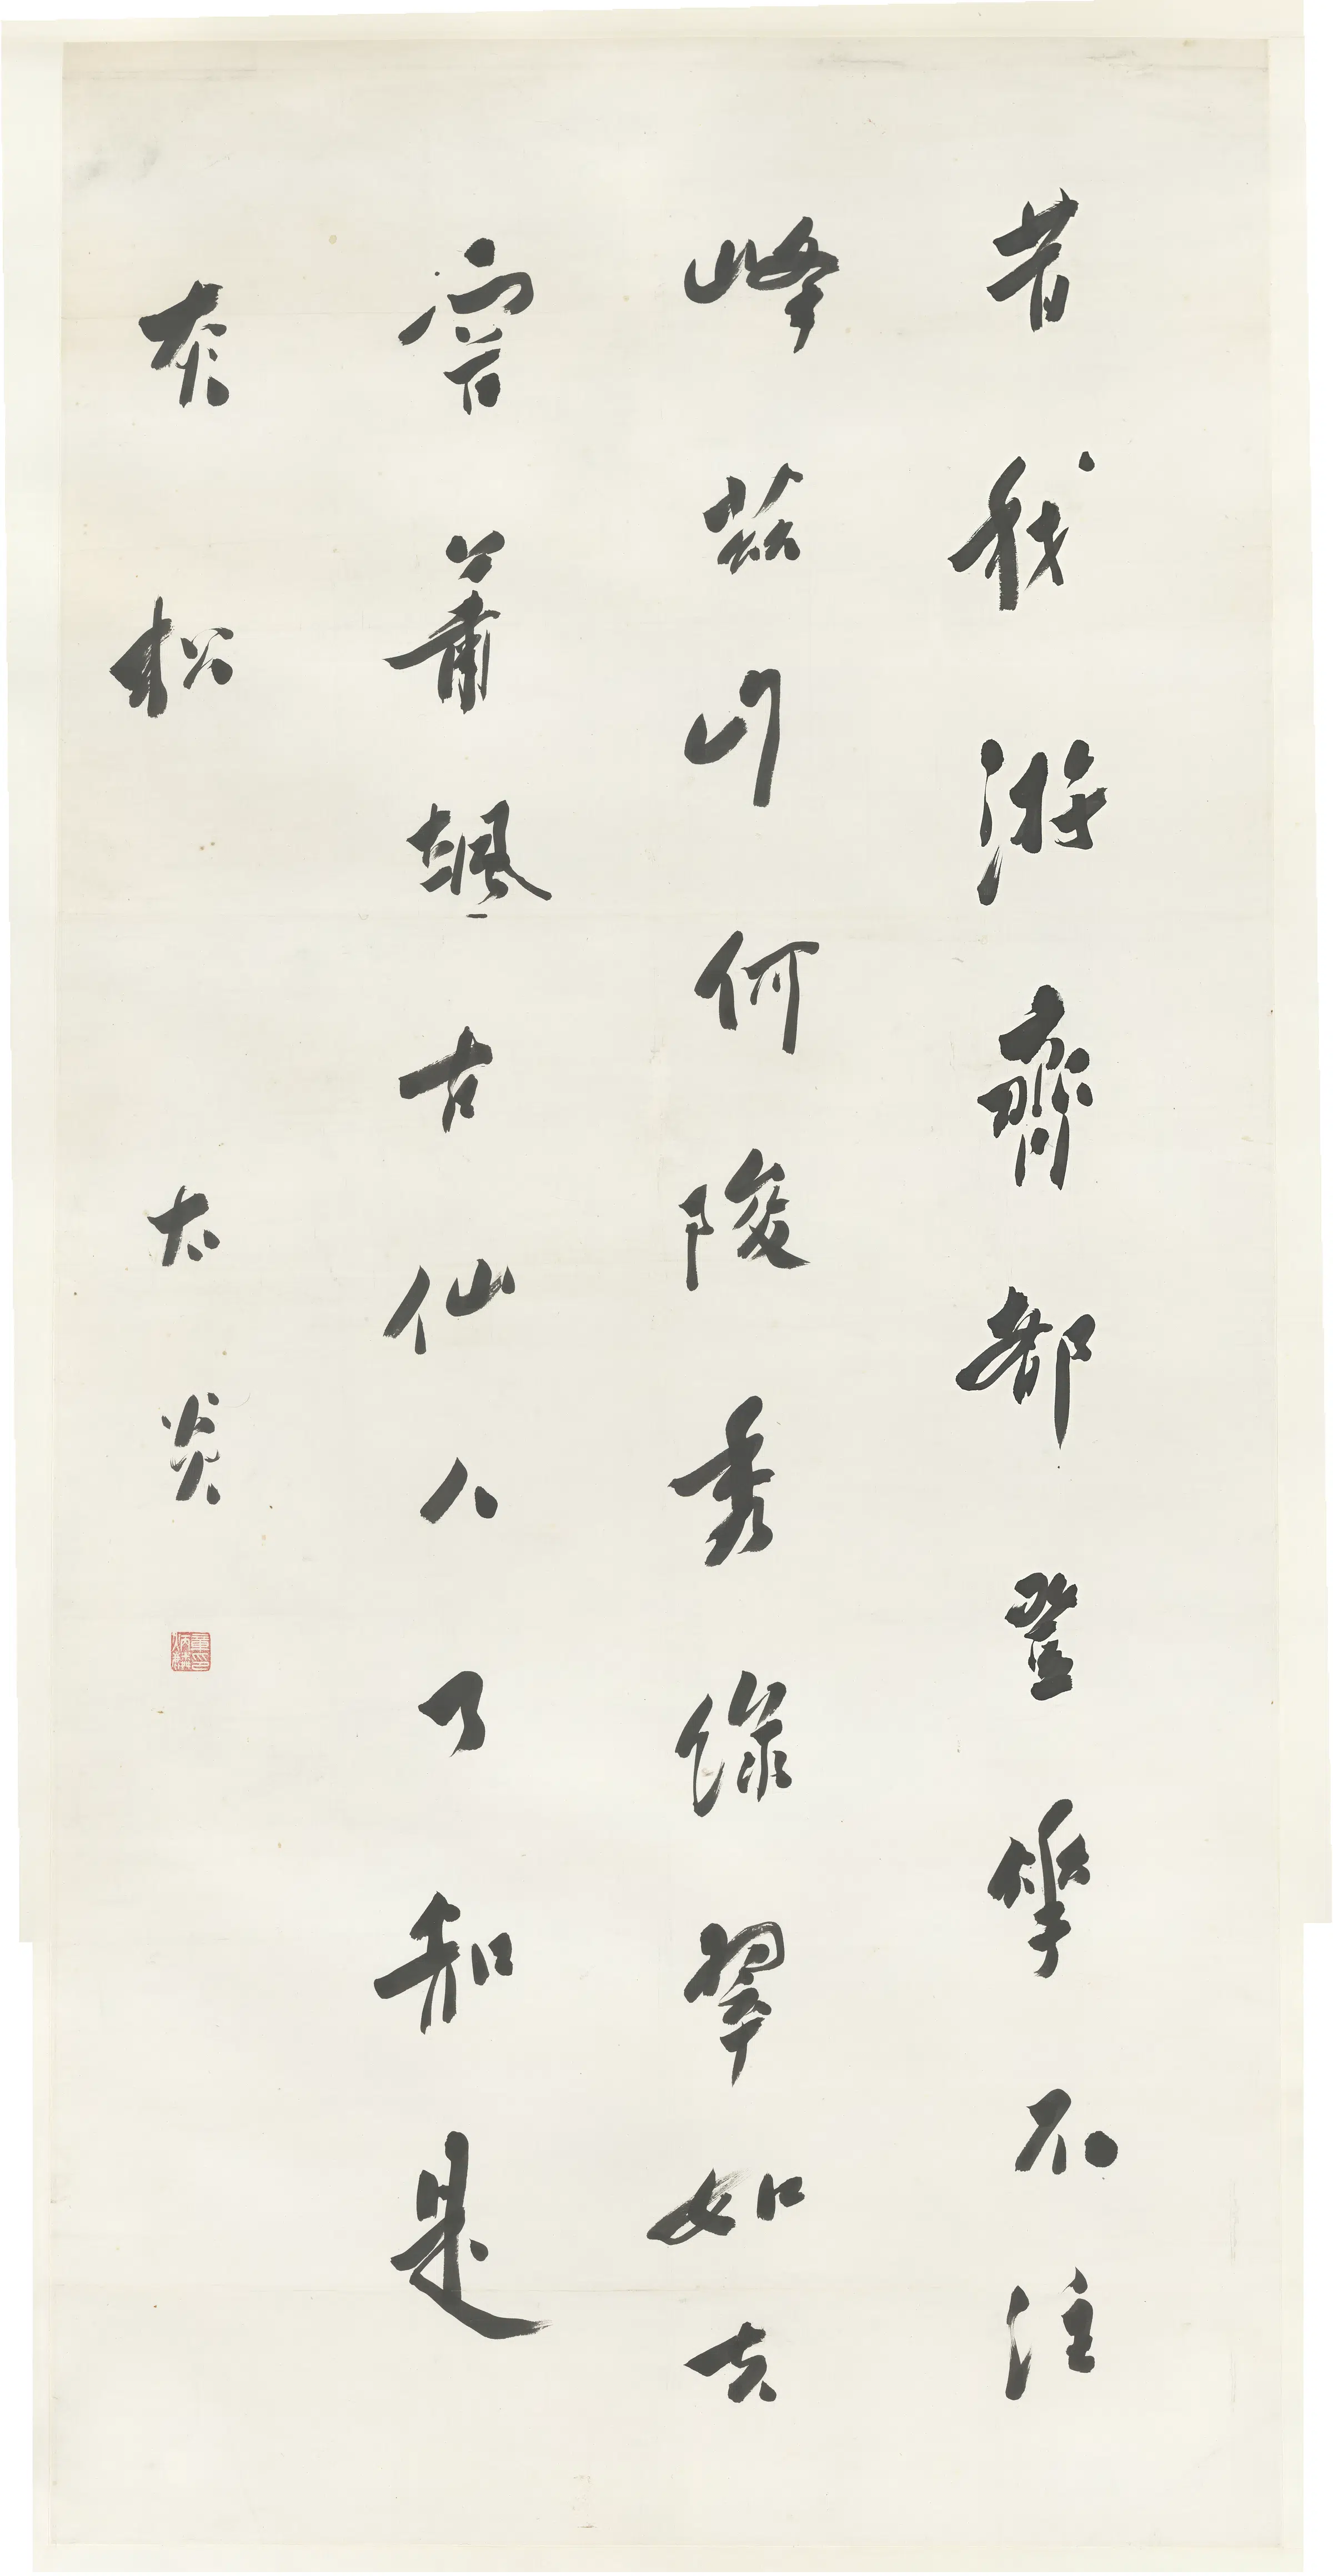 昔我游齊都登華不注
峰茲山何峻秀綠翠如芙
蓉蕭颯古仙人了知是
赤松
太炎
章炳麟印